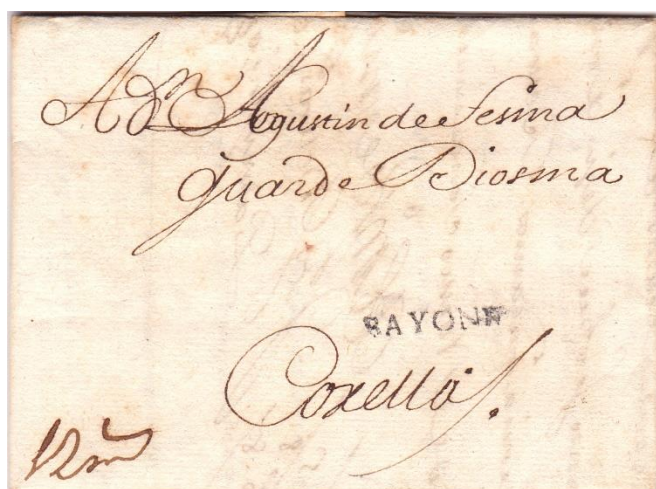 A Dn Agustin de Sesma
guarde Diosma
BAYONE
Corella